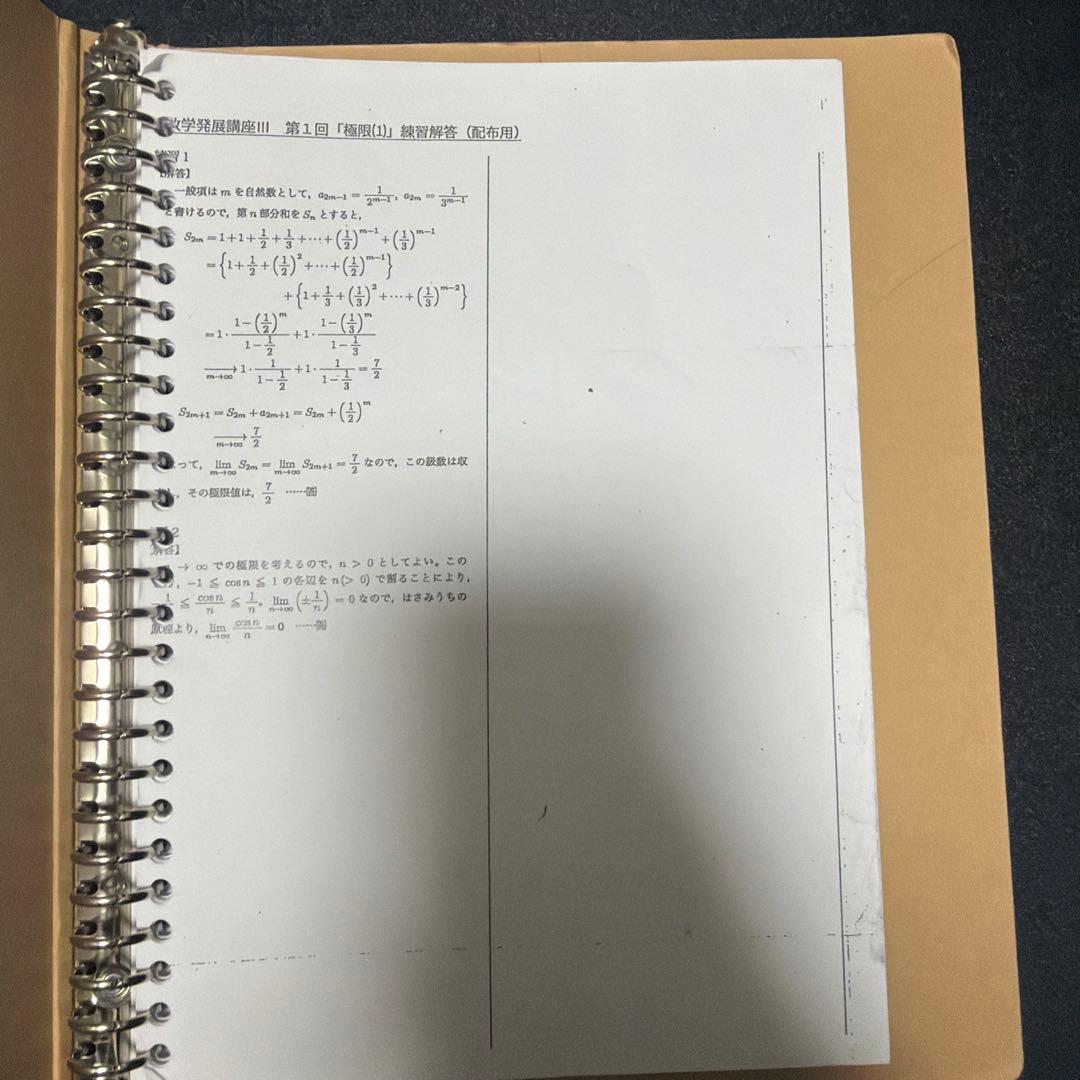 数学発展講座III 第1回「極限(1)」練習解答（配布用）
練習1
【解答】
一般項は m を自然数として，a_{2m-1} = \frac{1}{2^{m-1}}，a_{2m} = \frac{1}{3^{m-1}}
と書けるので，第 n 部分和を S_n とすると，
S_{2m} = 1+1+\frac{1}{2}+\frac{1}{3}+⋯+(\frac{1}{2})^{m-1}+(\frac{1}{3})^{m-1}
= {1+\frac{1}{2}+(\frac{1}{2})^2+⋯+(\frac{1}{2})^{m-1}}
+ {1+\frac{1}{3}+(\frac{1}{3})^2+⋯+(\frac{1}{3})^{m-2}}
= 1·\frac{1-(\frac{1}{2})^m}{1-\frac{1}{2}}+1·\frac{1-(\frac{1}{3})^m}{1-\frac{1}{3}}
\xrightarrow[m→∞]{} 1·\frac{1}{1-\frac{1}{2}}+1·\frac{1}{1-\frac{1}{3}}=\frac{7}{2}
S_{2m+1} = S_{2m}+a_{2m+1} = S_{2m}+(\frac{1}{2})^m
\xrightarrow[m→∞]{} \frac{7}{2}
って，\lim_{m→∞} S_{2m} = \lim_{m→∞} S_{2m+1} = \frac{7}{2} なので，この級数は収
，その極限値は，\frac{7}{2} ……㊫
2
【解答】
→ ∞ での極限を考えるので，n > 0 としてよい。この
，-1 ≦ cos n ≦ 1 の各辺を n(> 0) で割ることにより，
\frac{1}{n} ≦ \frac{cos n}{n} ≦ \frac{1}{n}。\lim_{n→∞} (±\frac{1}{n}) = 0 なので，はさみうちの
原理より，\lim_{n→∞} \frac{cos n}{n} = 0 ……㊫